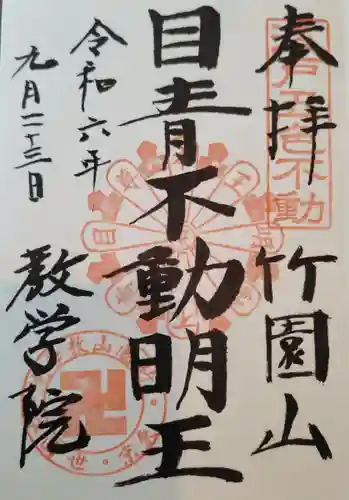 奉拝
竹園山
江戸五色不動
目青不動明王
令和六年
九月二十三日
教学院